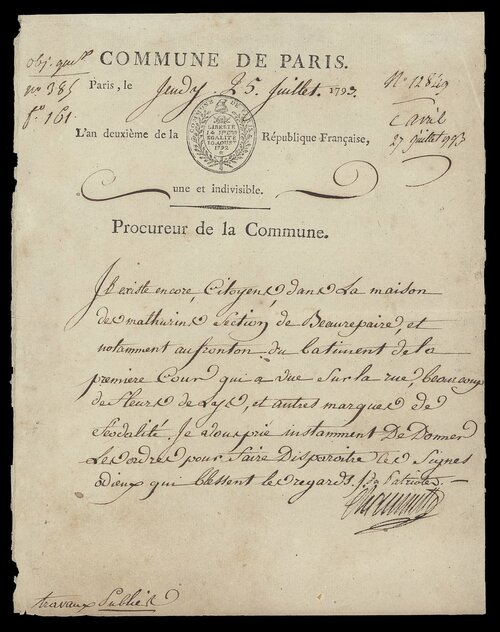 COMMUNE DE PARIS.
nº 385
fº 161
Paris, le Jeudy 25 Juillet 1793
Nº 12849
27 juillet 1793
COMMUNE DE PARIS
LIBERTÉ
14 JUILLET
EGALITÉ
10 AOUST
1792
L'an deuxième de la République Française,
une et indivisible.
Procureur de la Commune.
Il existe encore, Citoyens, dans La maison
des mathurins Section de Beaurepaire, et
notamment au fronton du batiment de la
premiere Cour qui a vue Sur la rue, beaucoup
de fleurs de Lys, et autres marques de
feodalité. Je vous prie instamment De Donner
Les ordres pour faire Disparoitre ces Signes
odieux qui blessent les regards des Patriotes.
Chaumette
travaux Publics